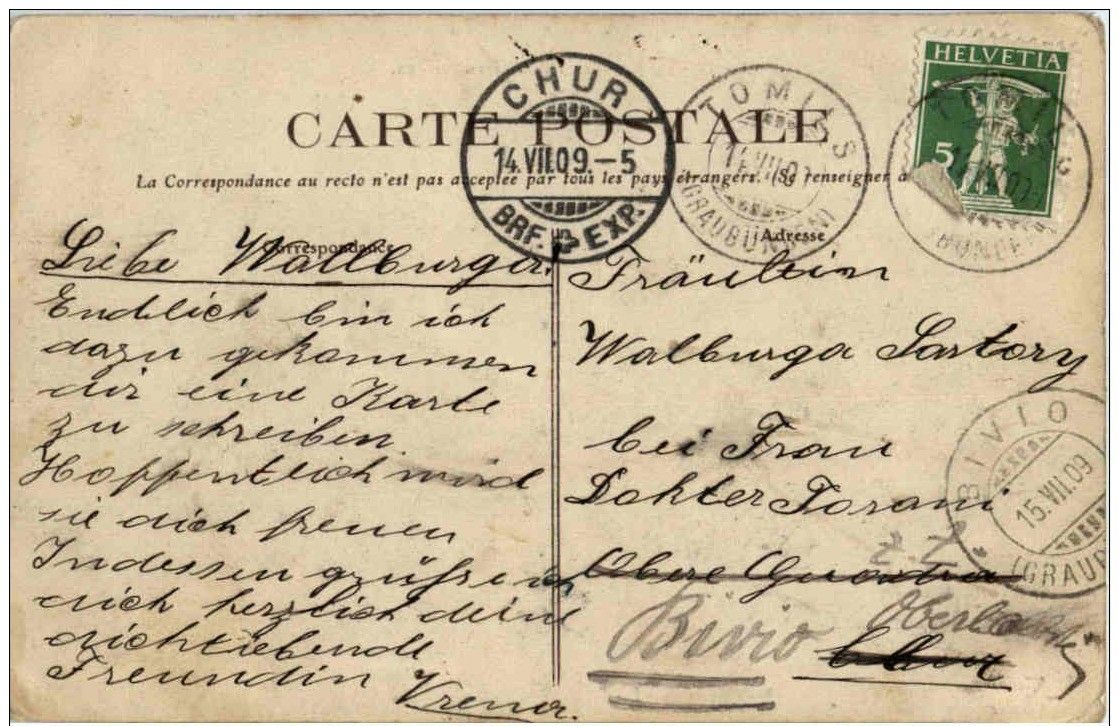 CARTE POSTALE
La Correspondance au recto n'est pas acceptée par tous les pays étrangers. (Se renseigner
CHUR
14.VII.09.-5
BRF. EXP.
TOMILS
14.VII.09
(GRAUBÜNDEN)
HELVETIA
5
BIVIO
15.VII.09
(GRAUB
Correspondance
Liebe Wallburga.
Endlich bin ich
dazu gekommen
dir eine Karte
zu schreiben
Hoffentlich wird
sie dich freuen
Indessen grüßt
dich herzlich deine
dichliebende
Freundin
Vrena.
Adresse
Fräulein
Walburga Sartory
bei Frau
Dokter Torani
z. Z.
Obere
Bivio